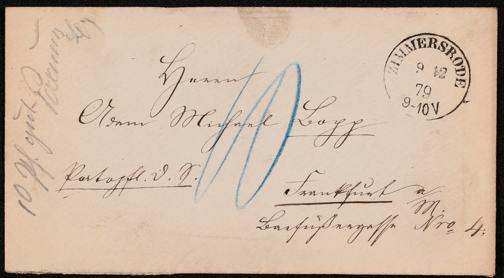 ZIMMERSRODE
9 12
79
9-10 V
Herrn
Adam Michael Bopp
Portopfl. D. S.
Frankfurt a/M.
Barfüßergasse Nro. 4.
10
10 Pf.